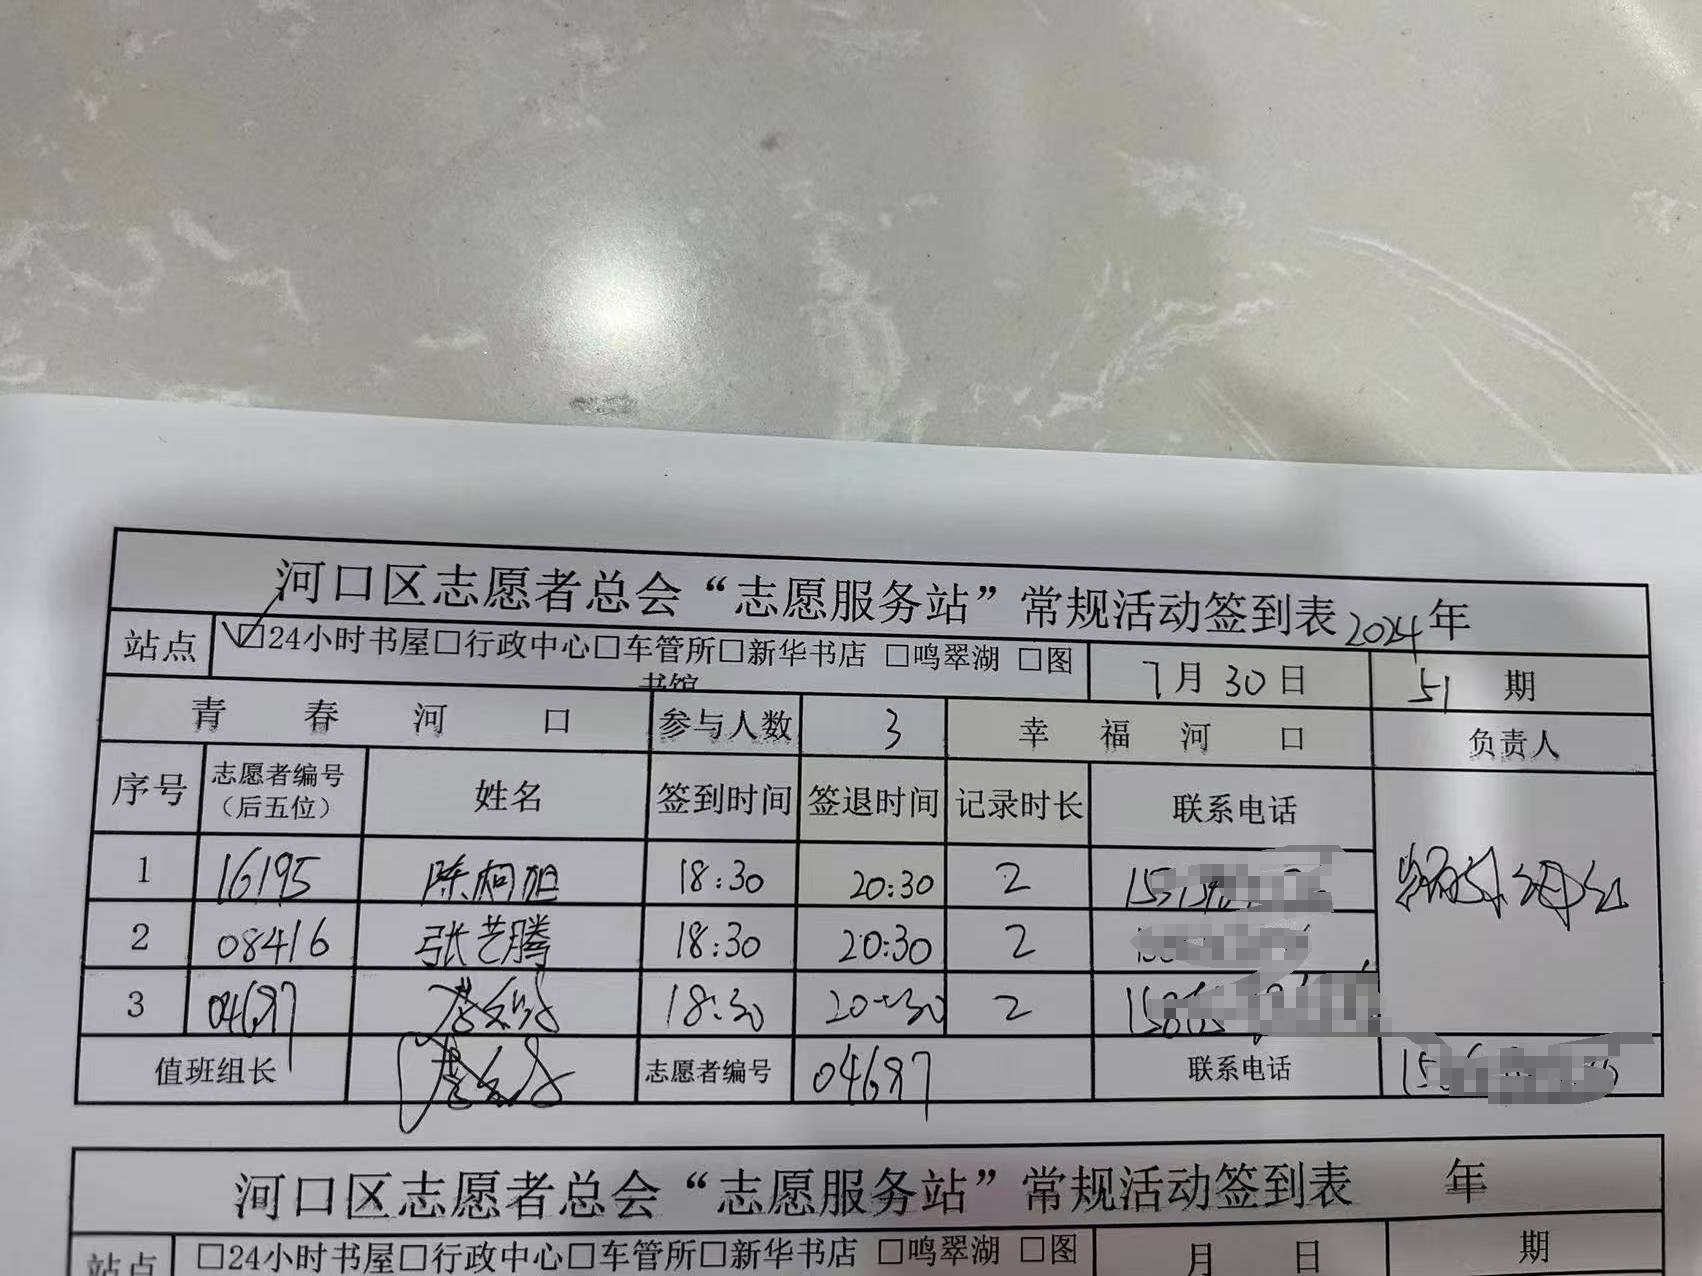 河口区志愿者总会“志愿服务站”常规活动签到表 2024年
站点 ☑24小时书屋□行政中心□车管所□新华书店 □鸣翠湖 □图书馆 7月30日 51期
青春河口 参与人数 3 幸福河口 负责人
序号 志愿者编号（后五位） 姓名 签到时间 签退时间 记录时长 联系电话
1 16195 陈柯旭 18:30 20:30 2
2 08416 张艺腾 18:30 20:30 2
3 04687 18:30 20:30 2
值班组长 志愿者编号 04687 联系电话
河口区志愿者总会“志愿服务站”常规活动签到表 年
站点 □24小时书屋□行政中心□车管所□新华书店 □鸣翠湖 □图 月 日 期